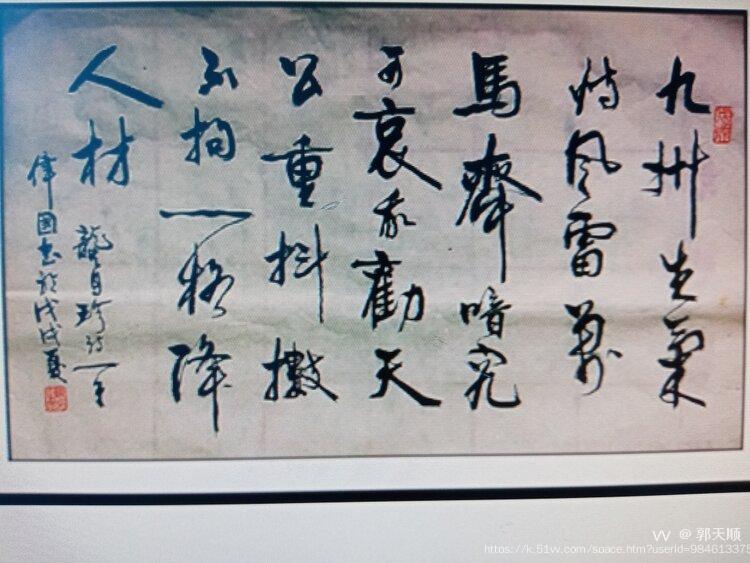 九州生氣
恃風雷萬
馬齊喑究
可哀我勸天
公重抖擻
不拘一格降
人材
龔自珍詩一首
偉國書於戊戌夏
@ 郭天顺
https://k.51vv.com/space.htm?userId=984613375